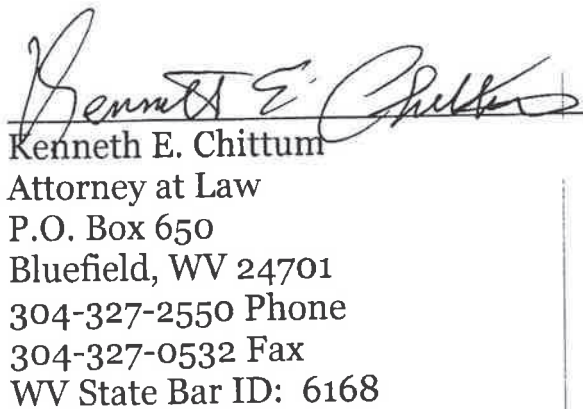 Kenneth E. Chittum
Kenneth E. Chittum
Attorney at Law
P.O. Box 650
Bluefield, WV 24701
304-327-2550 Phone
304-327-0532 Fax
WV State Bar ID: 6168